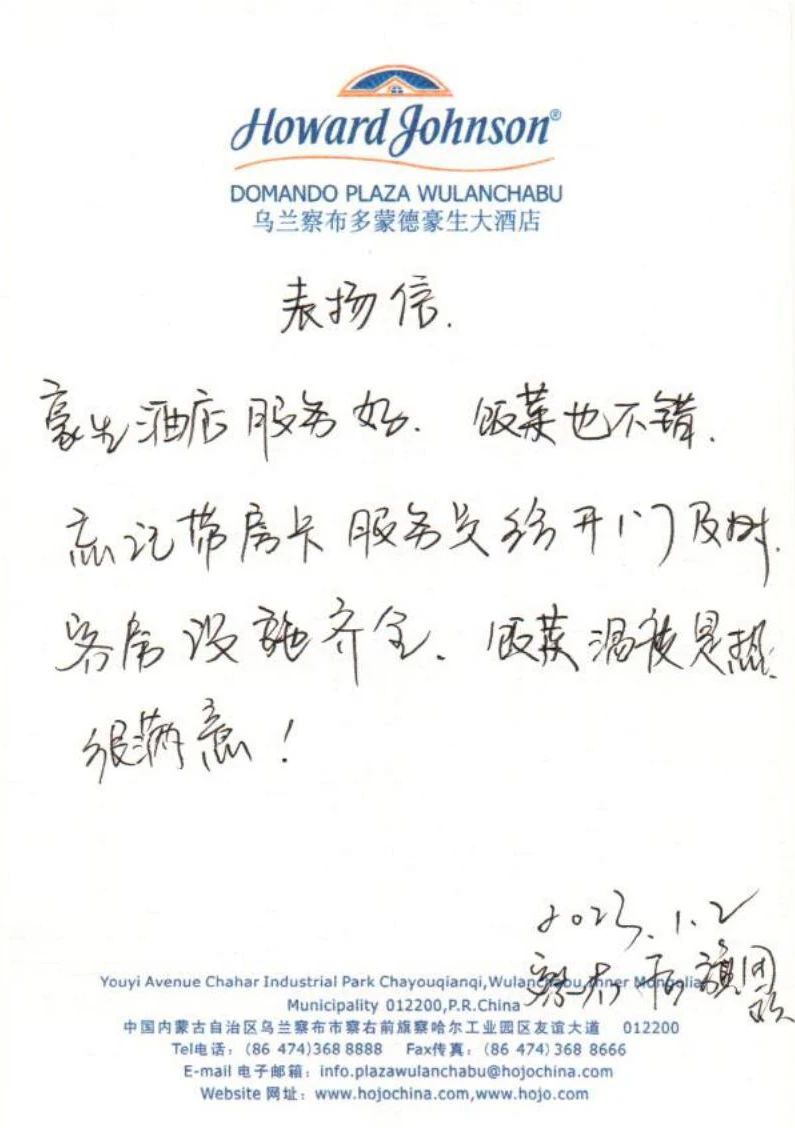 Howard Johnson®
DOMANDO PLAZA WULANCHABU
乌兰察布多蒙德豪生大酒店
表扬信.
豪生酒店服务好. 饭菜也不错.
忘记带房卡服务员给开门及时.
客房设施齐全. 饭菜
很满意!
2023.1.2
Youyi Avenue Chahar Industrial Park Chayouqianqi,Wulanchabu,Inner Mongolia
Municipality 012200,P.R.China
中国内蒙古自治区乌兰察布市察右前旗察哈尔工业园区友谊大道 012200
Tel电话：(86 474)368 8888 Fax传真：(86 474) 368 8666
E-mail 电子邮箱：info.plazawulanchabu@hojochina.com
Website 网址：www.hojochina.com,www.hojo.com